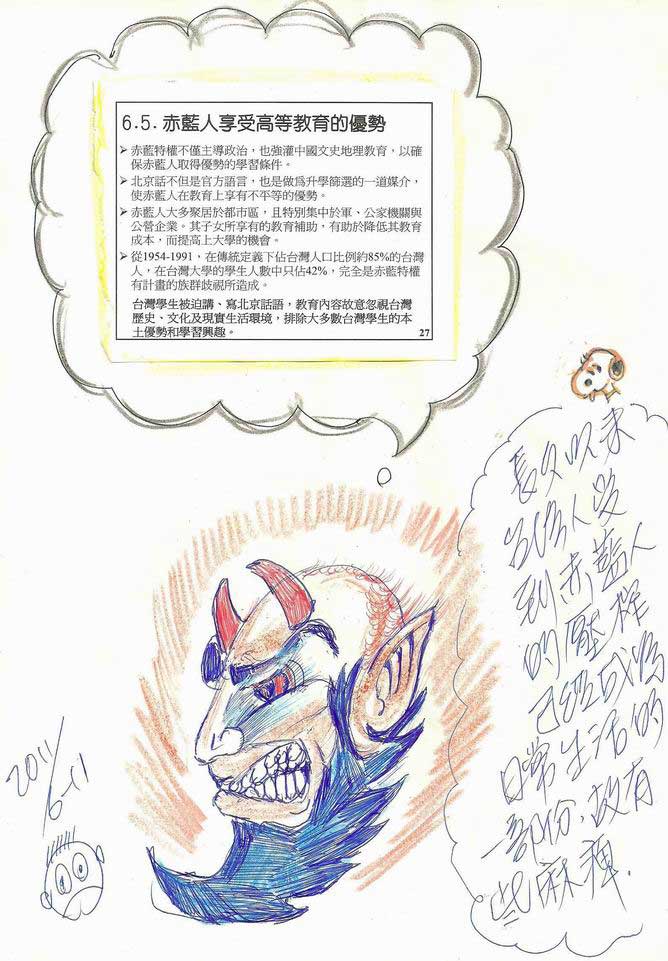 6.5. 赤藍人享受高等教育的優勢
➢ 赤藍特權不僅主導政治，也強灌中國文史地理教育，以確
保赤藍人取得優勢的學習條件。
➢ 北京話不但是官方語言，也是做爲升學篩選的一道媒介，
使赤藍人在教育上享有不平等的優勢。
➢ 赤藍人大多聚居於都市區，且特別集中於軍、公家機關與
公營企業。其子女所享有的教育補助，有助於降低其教育
成本，而提高上大學的機會。
➢ 從1954-1991，在傳統定義下佔台灣人口比例約85%的台灣
人，在台灣大學的學生人數中只佔42%，完全是赤藍特權
有計畫的族群歧視所造成。
台灣學生被迫講、寫北京話語，教育內容故意忽視台灣
歷史、文化及現實生活環境，排除大多數台灣學生的本
土優勢和學習興趣。
27
長久以來
台灣人受
到赤藍人
的壓榨
已經成為
日常生活的
一部份，故有
些麻痺.
2011/
6-11